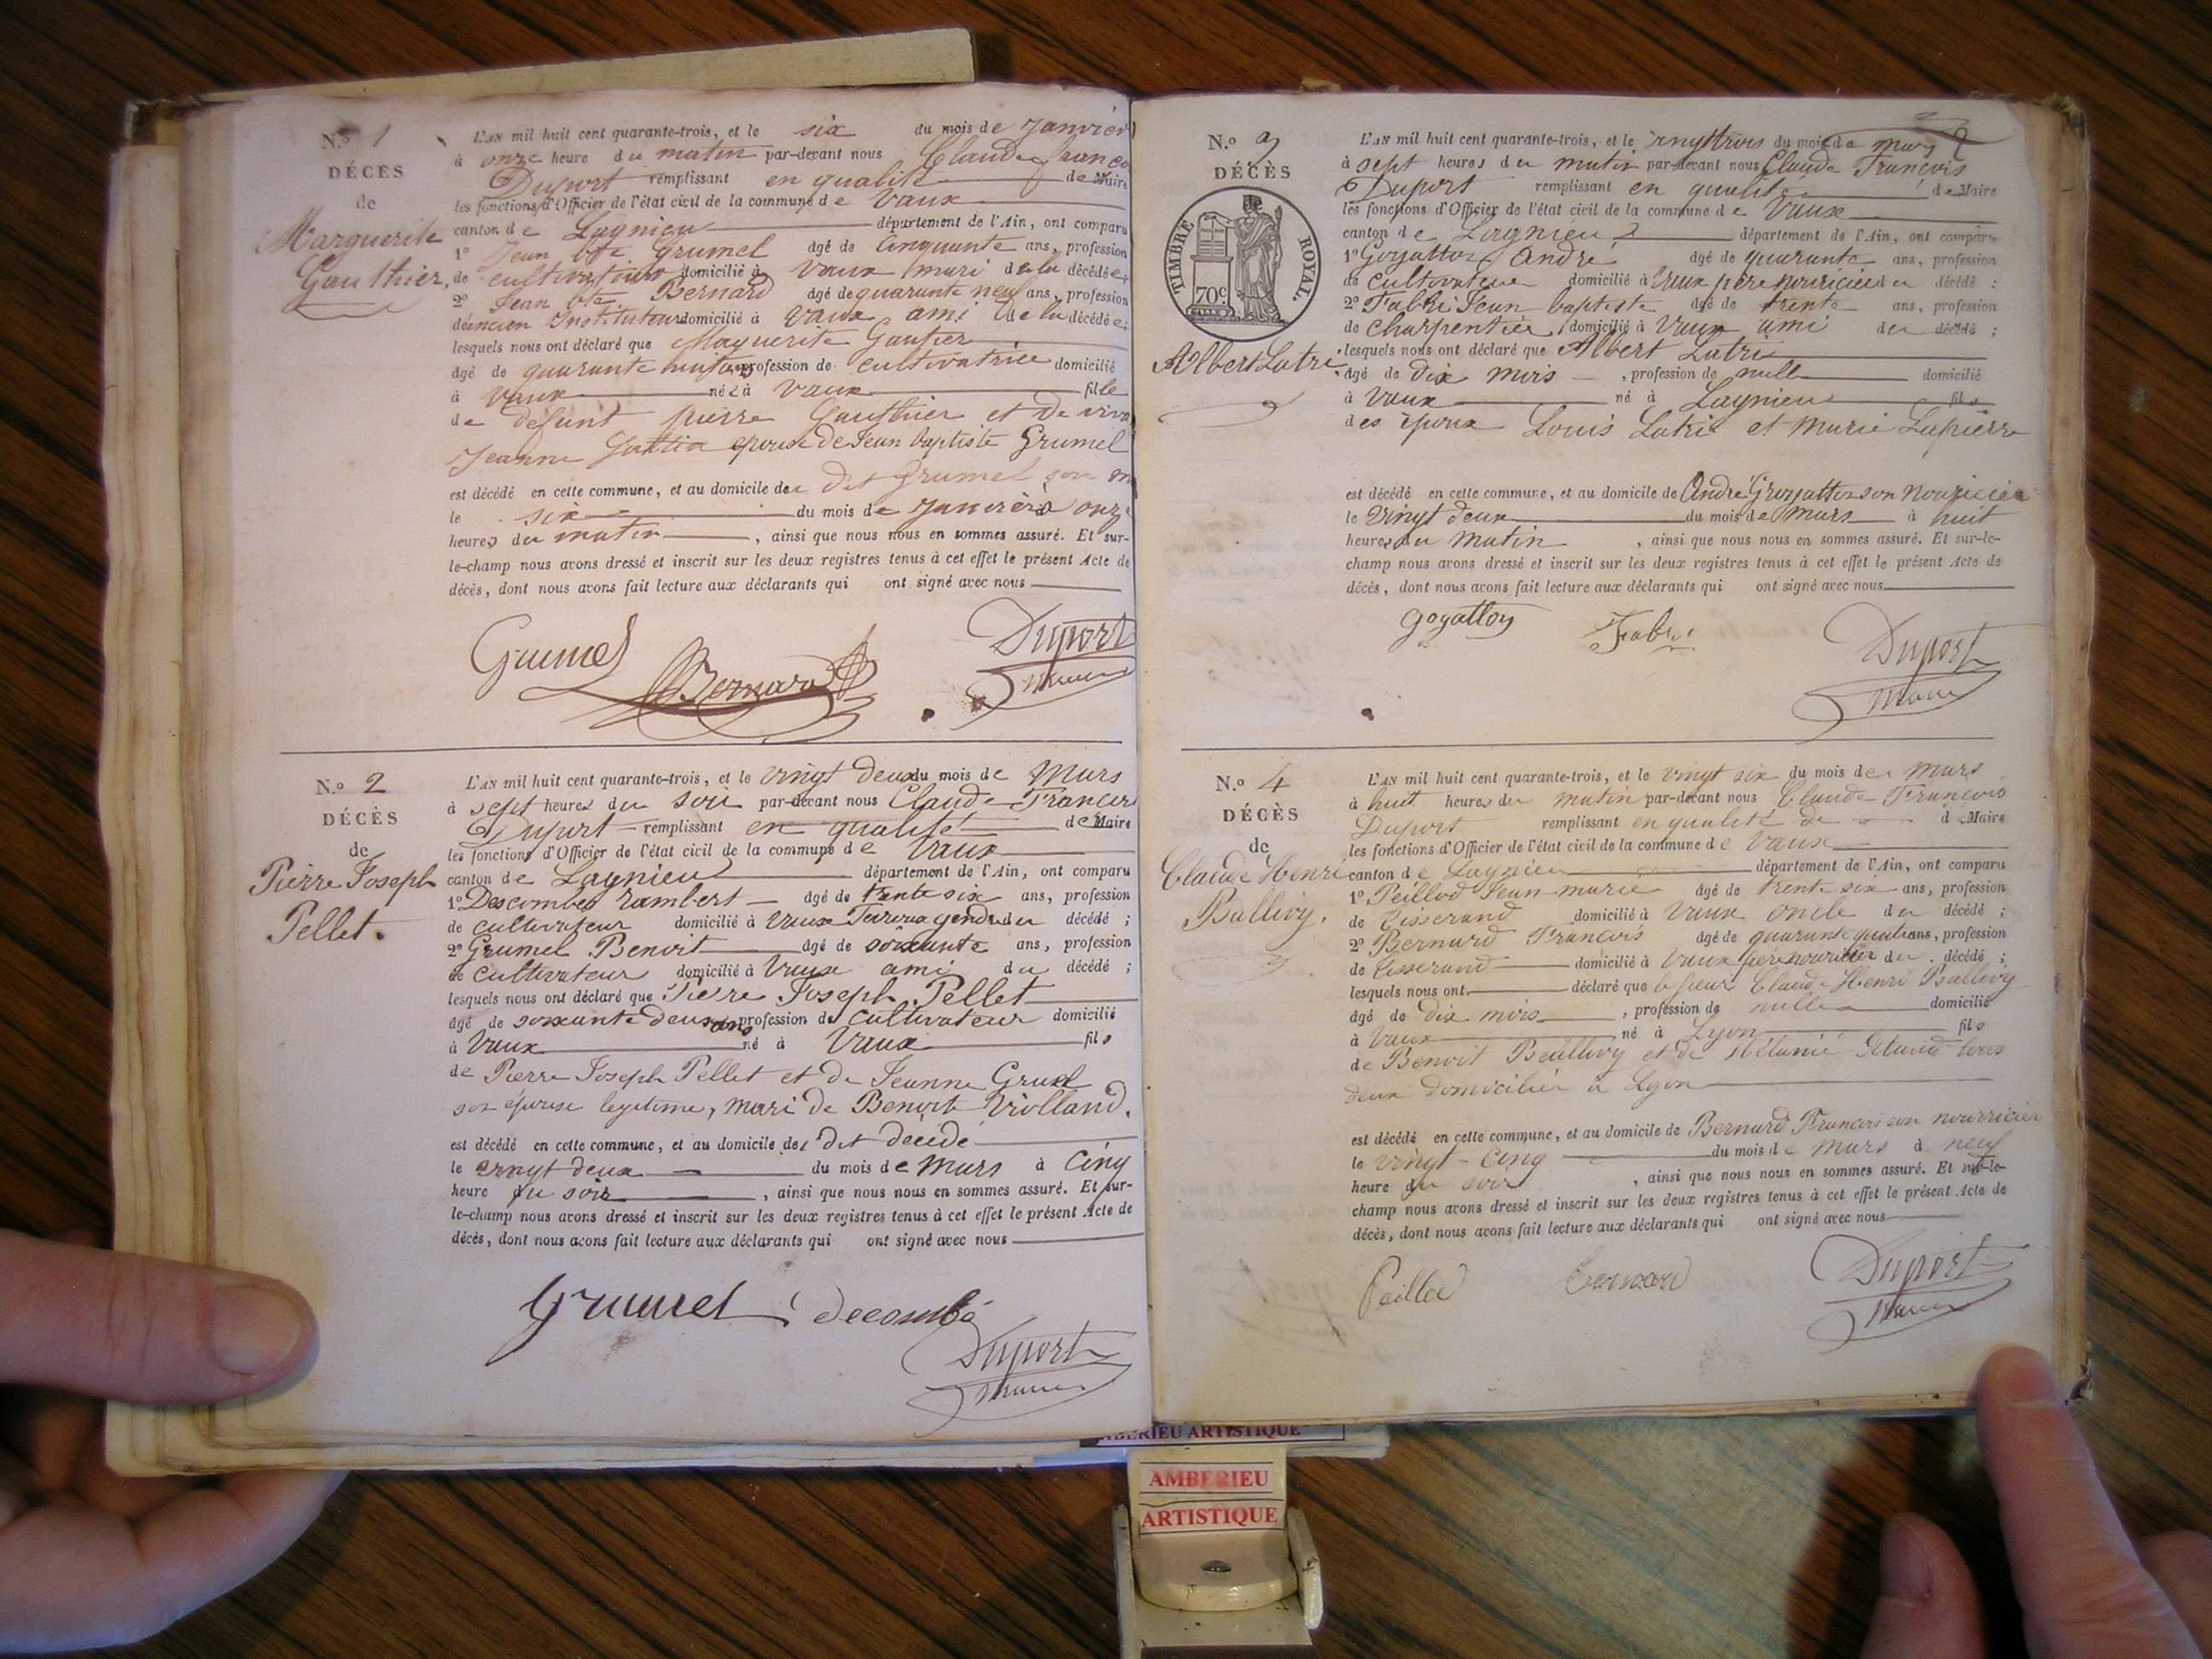 N.º 1
DÉCÈS
de
Marguerite
Gauthier,
L'AN mil huit cent quarante-trois, et le six du mois de Janvier
à onze heure du matin par-devant nous Claude franço
Duport remplissant en qualité de Maire
les fonctions d'Officier de l'état civil de la commune de Vaux
canton de Lagnieu département de l'Ain, ont comparu
1º Jean bte Grumel âgé de Cinquante ans, profession
de cultivateur domicilié à Vaux mari de la décédée
2º Jean bte Bernard âgé de quarante neuf ans, profession
d'ancien Instituteur domicilié à Vaux ami de la décédée;
lesquels nous ont déclaré que Maguerite Gautier
âgé de quarante huit ans profession de cultivatrice domicilié
à Vaux née à Vaux fille
de défunt pierre Gauthier et de vive
Jeanne épouse de Jean baptiste Grumel
est décédé en cette commune, et au domicile du dit Grumel son
le six du mois de Janvier à onze
heures du matin, ainsi que nous nous en sommes assuré. Et sur-
le-champ nous avons dressé et inscrit sur les deux registres tenus à cet effet le présent Acte de
décès, dont nous avons fait lecture aux déclarants qui ont signé avec nous
Grumel Bernard Duport
Maire
N.º 2
DÉCÈS
de
Pierre Joseph
Pellet.
L'AN mil huit cent quarante-trois, et le vingt deux du mois de Mars
à sept heures du soir par-devant nous Claude Francois
Duport remplissant en qualité de Maire
les fonctions d'Officier de l'état civil de la commune de Vaux
canton de Lagnieu département de l'Ain, ont comparu
1º Descombes Rambert âgé de trente six ans, profession
de cultivateur domicilié à Vaux gendre du décédé;
2º Grumel Benoit âgé de soixante ans, profession
de cultivateur domicilié à Vaux ami du décédé;
lesquels nous ont déclaré que Pierre Joseph Pellet
âgé de soixante deux ans profession de cultivateur domicilié
à Vaux né à Vaux fils
de Pierre Joseph Pellet et de Jeanne Gruel
son épouse legitime, mari de Benoite Violland.
est décédé en cette commune, et au domicile du dit décédé
le vingt deux du mois de Mars à Cinq
heure du soir, ainsi que nous nous en sommes assuré. Et sur-
le-champ nous avons dressé et inscrit sur les deux registres tenus à cet effet le présent Acte de
décès, dont nous avons fait lecture aux déclarants qui ont signé avec nous
Grumel decombe
Duport
Maire
N.º 3
DÉCÈS
TIMBRE ROYAL.
70c
Albert Latri.
L'AN mil huit cent quarante-trois, et le vingt trois du mois de mars
à sept heures du matin par-devant nous Claude François
Duport remplissant en qualité de Maire
les fonctions d'Officier de l'état civil de la commune de Vaux
canton de Lagnieu département de l'Ain, ont comparu
1º Goyatton André âgé de quarante ans, profession
de cultivateur domicilié à Vaux père nouricier du décédé;
2º Fabri Jean baptiste âgé de trente ans, profession
de charpentier domicilié à Vaux ami du décédé;
lesquels nous ont déclaré que Albert Latri
âgé de dix mois, profession de nulle domicilié
à Vaux né à Lagnieu fils
des époux Louis Latri et Marie Lapierre
est décédé en cette commune, et au domicile de André Goyatton son nouricier
le vingt deux du mois de Mars à huit
heures du matin, ainsi que nous nous en sommes assuré. Et sur-le-
champ nous avons dressé et inscrit sur les deux registres tenus à cet effet le présent Acte de
décès, dont nous avons fait lecture aux déclarants qui ont signé avec nous
goyatton Fabri Duport
Maire
N.º 4
DÉCÈS
de
Claude Henri
Ballivy.
L'AN mil huit cent quarante-trois, et le vingt six du mois de Mars
à huit heures du matin par-devant nous Claude Francois
Duport remplissant en qualité de d Maire
les fonctions d'Officier de l'état civil de la commune de Vaux
canton de Lagnieu département de l'Ain, ont comparu
1º Peillod Jean-marie âgé de trente six ans, profession
de Tisserand domicilié à Vaux oncle du décédé;
2º Bernard Francois âgé de quarante ans, profession
de tisserand domicilié à Vaux père nouricier du décédé;
lesquels nous ont déclaré que le sieur Claude Henri Ballivy
âgé de dix mois, profession de nulle domicilié
à Vaux né à Lyon fils
de Benoit Ballivy et de Mélanie tous
deux domiciliés à Lyon
est décédé en cette commune, et au domicile de Bernard Francois son nourricier
le vingt-cinq du mois de Mars à neuf
heure du soir, ainsi que nous nous en sommes assuré. Et sur-le-
champ nous avons dressé et inscrit sur les deux registres tenus à cet effet le présent Acte de
décès, dont nous avons fait lecture aux déclarants qui ont signé avec nous
Peillod bernard Duport
Maire
AMBERIEU ARTISTIQUE
AMBERIEU
ARTISTIQUE